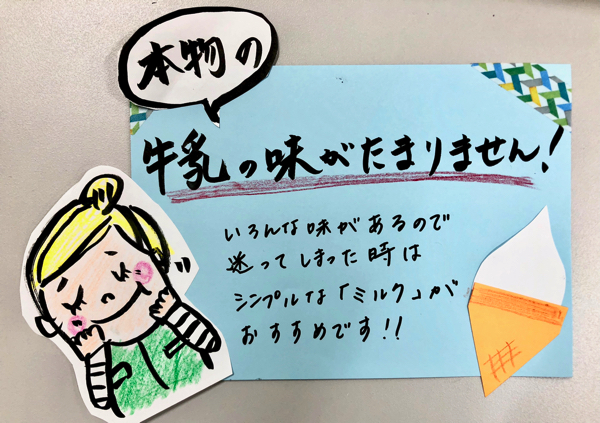 本物の
牛乳の味がたまりません!
いろんな味があるので
迷ってしまった時は
シンプルな「ミルク」が
おすすめです!!